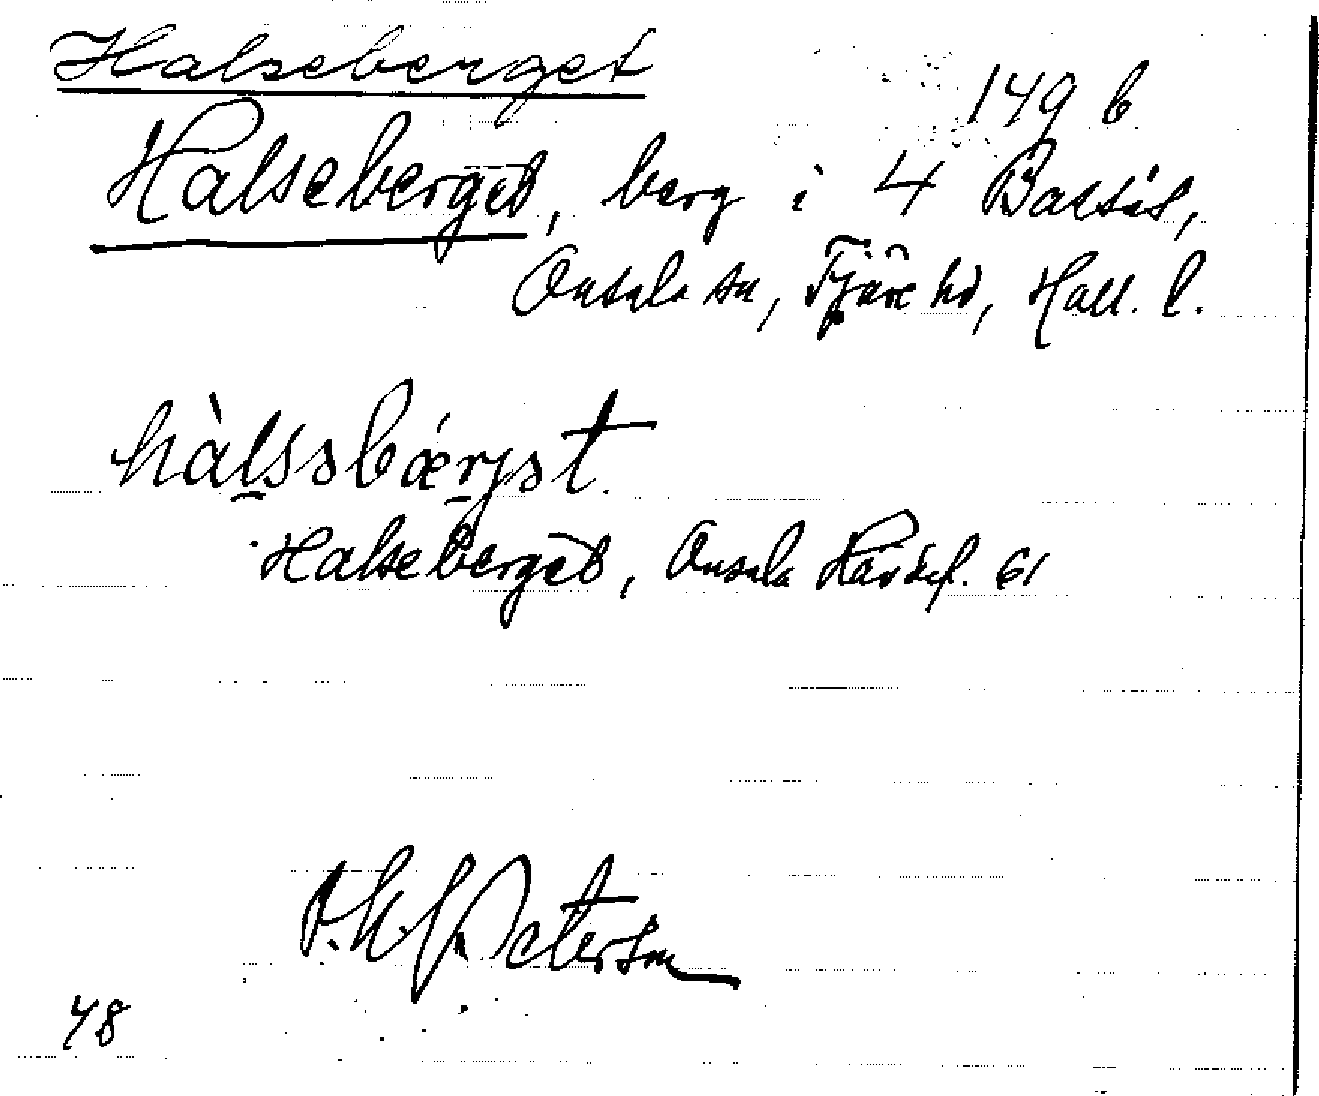 Halseberget
149 b
Halseberget, berg i 4 Baltås,
Onsala sn, Fjäre hd, Hall. l.
hàlsəbǽrjət.
Halseberget, Onsala Hävdsf. 61
Peterson
48